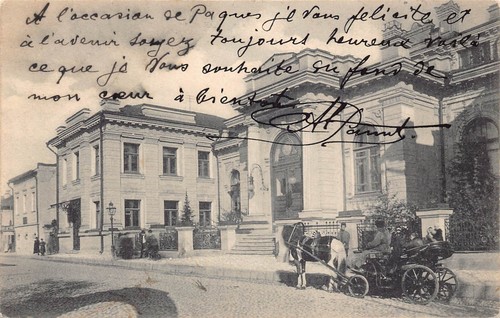 A l'occasion de Paques je vous felicite et
à l'avenir soyez toujours heureux voilà
ce que je vous souhaite du fond de
mon cœur à bientot